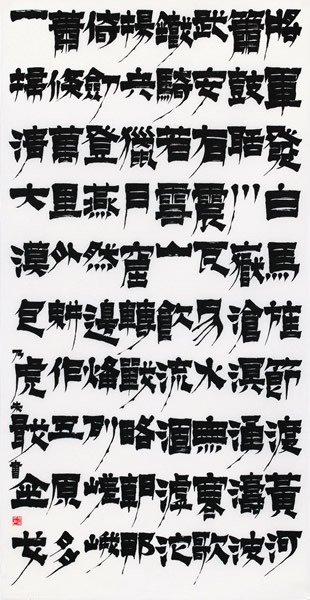 將軍發白馬旌節渡黃河
簫鼓聒川嶽滄溟湧濤波
武安有震瓦易水無寒歌
鐵騎若雪山飲流涸滹沱
揚兵獵月窟轉戰略朝那
倚劍登燕然邊烽列嵯峨
蕭條萬里外耕作五原多
一掃清大漠包虎戢金戈